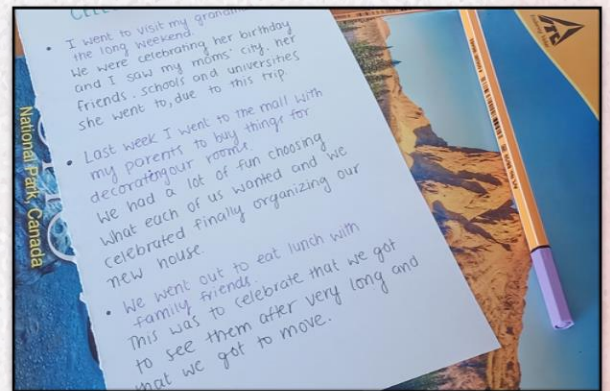 CEL
• I went to visit my grandm
the long weekend.
We were celebrating her birthday
and I saw my moms' city, her
friends, schools and universities
she went to, due to this trip.
• Last week I went to the mall with
my parents to buy things for
decorating our rooms.
We had a lot of fun choosing
what each of us wanted and we
celebrated finally organizing our
new house.
• We went out to eat lunch with
family friends.
This was to celebrate that we got
to see them after very long and
that we got to move.
National Park, Canada